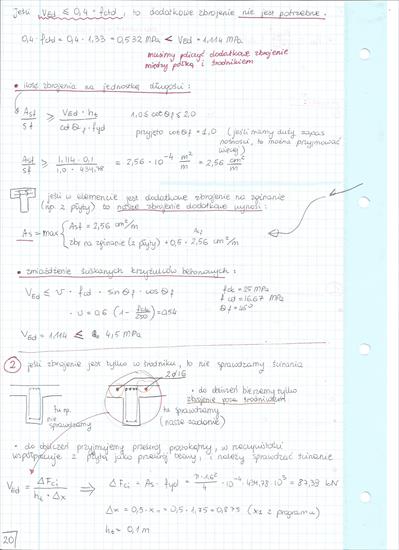 jeśli VEd ≤ 0,4 · fctd, to dodatkowe zbrojenie nie jest potrzebne.
0,4 · fctd = 0,4 · 1,33 = 0,532 MPa < VEd = 1,114 MPa
musimy policzyć dodatkowe zbrojenie
między półką i środnikiem
• ilość zbrojenia na jednostkę długości:
Asf / sf ≥ VEd · hf / cotθf · fyd
1,0 ≤ cotθf ≤ 2,0
przyjęto cotθf = 1,0 (jeśli mamy duży zapas
nośności, to można przyjmować
więcej)
Asf / sf ≥ 1,114 · 0,1 / 1,0 · 434,78 = 2,56 · 10⁻⁴ m²/m = 2,56 cm²/m
jeśli w elemencie jest dodatkowe zbrojenie na zginanie
(np. z płyty) to nasze zbrojenie dodatkowe wynosi:
As = max { Asf = 2,56 cm²/m
zbr na zginanie (z płyty) + 0,5 · 2,56 cm²/m
• zmiażdżenie ściskanych krzyżulców betonowych:
VEd ≤ ν · fcd · sinθf · cosθf
fck = 25 MPa
fcd = 16,67 MPa
θf = 45°
· ν = 0,6 (1 - fck/250) = 0,54
VEd = 1,114 ≤ 4,5 MPa
2 jeśli zbrojenie jest tylko w środniku, to nie sprawdzamy ścinania
2ø16
tu np.
nie
sprawdzamy
tu sprawdzamy
(nasze zadanie)
• do obliczeń bierzemy tylko
zbrojenie poza środnikiem
• do obliczeń przyjmujemy przekrój prostokątny, w rzeczywistości
współpracuje z płytą jako przekrój teowy, i należy sprawdzać ścinanie
VEd = ΔFcj / hf · Δx ⟹ ΔFcj = As · fyd = π · 1,6² / 4 · 10⁻⁴ · 434,78 · 10³ = 87,38 kN
Δx = 0,5 · x = 0,5 · 1,75 = 0,875 (xs z programu)
hf = 0,1 m
20